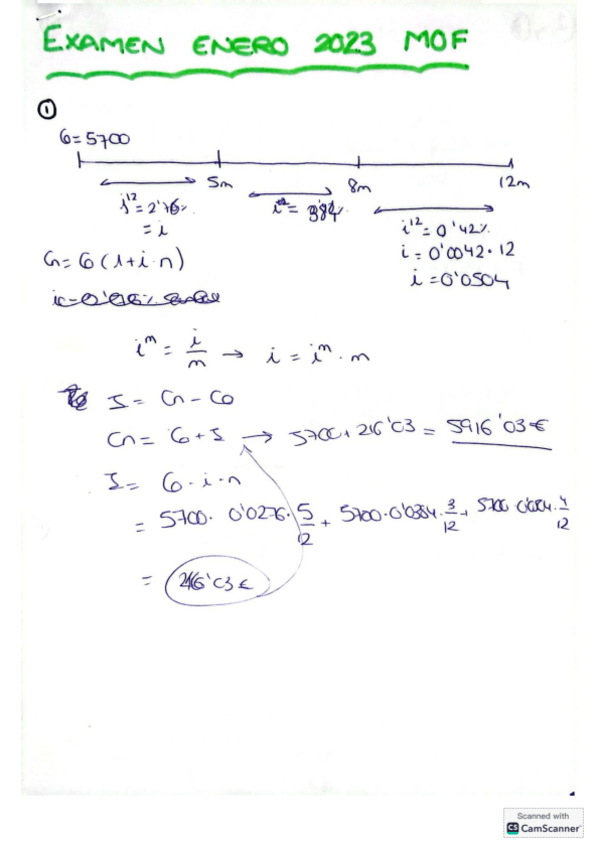 EXAMEN ENERO 2023 MOF
①
C0=5700
5m 8m 12m
i¹²=2'76%
=i
i¹²=0'42%
i=0'0042·12
i=0'0504
Cn=C0(1+i·n)
iᵐ = i/m → i = iᵐ·m
I = Cn-C0
Cn= C0+I → 5700+216'03 = 5916'03€
I= C0·i·n
= 5700·0'0276·5/12 + 5700·0'0384·3/12 + 5700· ·4/12
= 216'03€
Scanned with
CS CamScanner